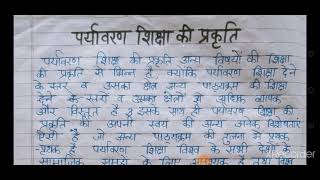 पर्यावरण शिक्षा की प्रकृति
पर्यावरण शिक्षा की प्रकृति अन्य विषयों की शिक्षा
की प्रकृति से भिन्न है, क्योंकि पर्यावरण शिक्षा देने
के स्तर व उसका क्षेत्र अन्य पाठ्यक्रम की शिक्षा
देने के स्तरों व उसका क्षेत्रों से अधिक व्यापक
और विस्तृत है। इसके साथ ही पर्यावरण शिक्षा की
प्रकृति की अपनी स्वयं की अन्य अनेक विशेषताएं
ऐसी है जो अन्य पाठ्यक्रम की तुलना में पृथक
-पृथक है पर्यावरण शिक्षा विश्व के सभी देशों के
के लिए तथा विश्व